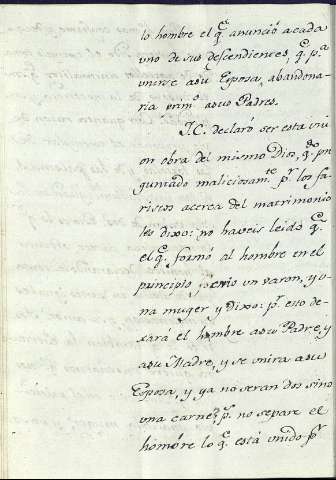 lo hombre el q.e anunció a cada
uno de sus descendientes, q.e p.a
unirse a su Esposa, abandona-
ria prim.o a sus Padres.
J.C. declaró ser esta uni
on obra del mismo Dios, q.do pre
guntado maliciosam.te p.r los fa-
riseos acerca del matrimonio
les dixo: no haveis leido q.e
el q.e formó al hombre en el
principio un varon, y u-
na muger y dixo: p.r esto de-
xará el hombre a su Padre, y
a su Madre, y se unira a su
Esposa, y ya no seran dos sino
una carne? no separe el
hombre lo q.e está unido p.r